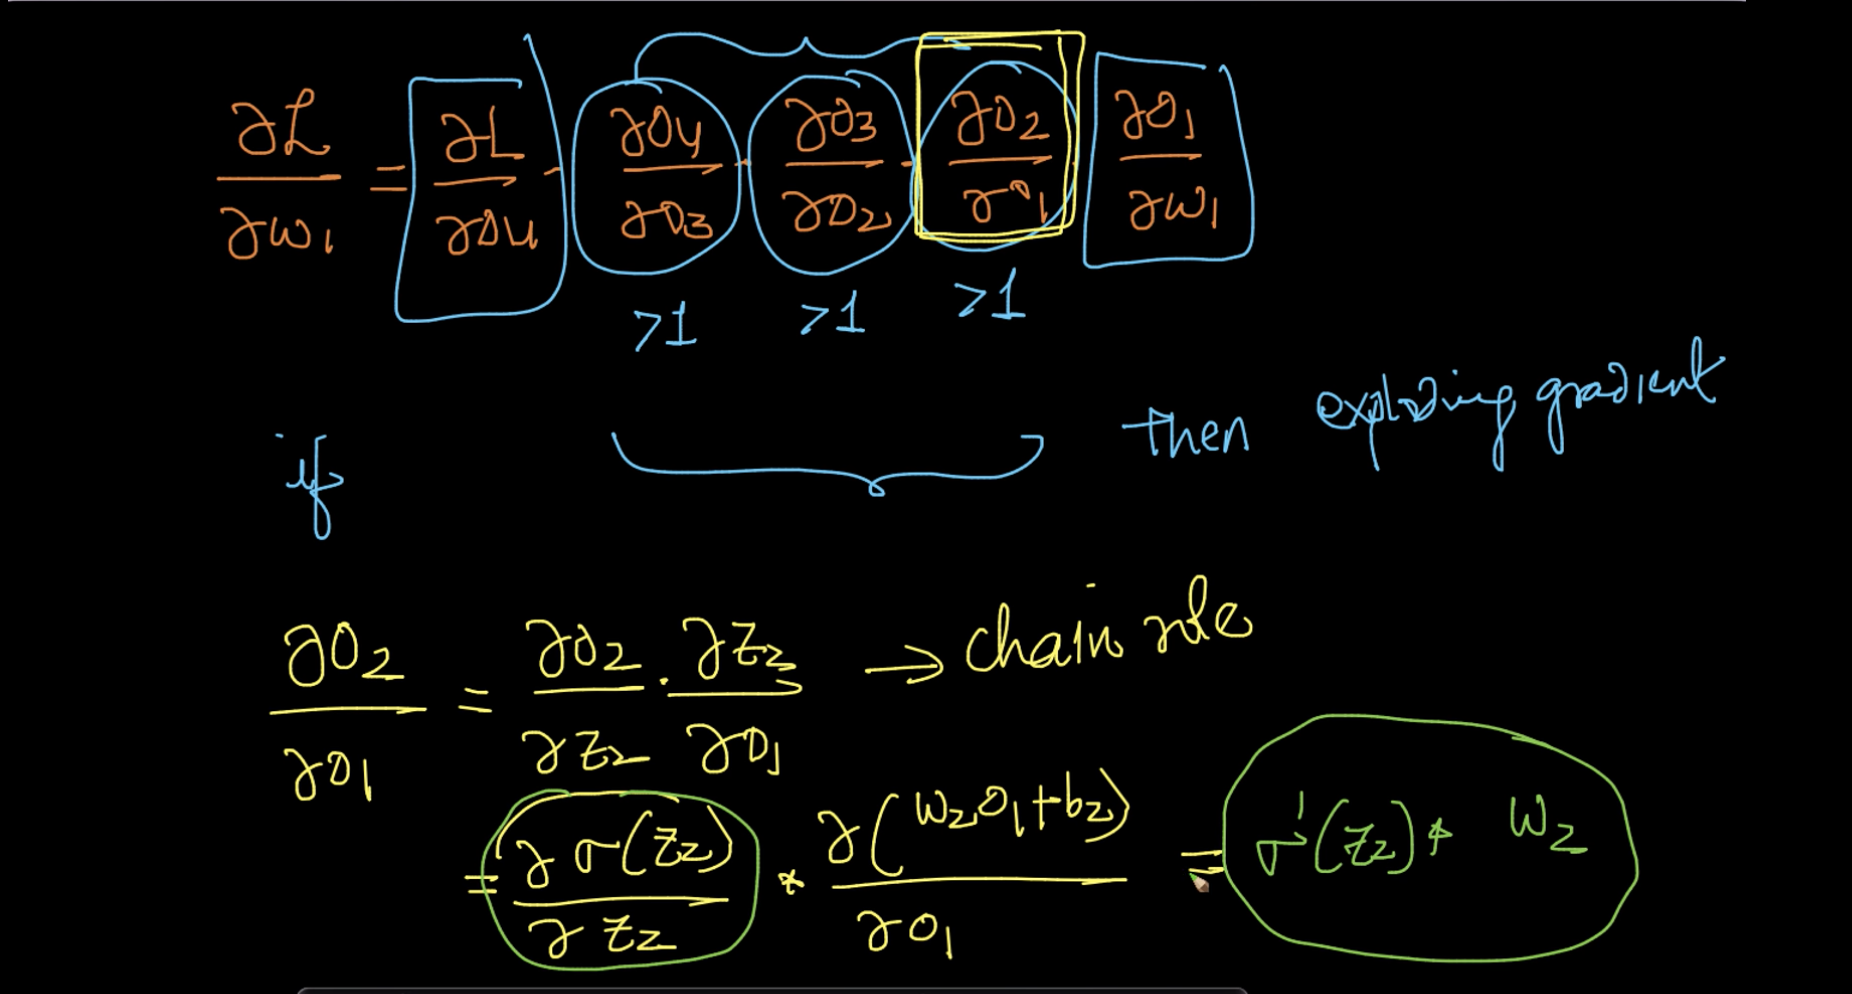 ∂L/∂w1 = ∂L/∂O4 · ∂O4/∂O3 · ∂O3/∂O2 · ∂O2/∂O1 ∂O1/∂w1
>1 >1 >1
if then exploding gradient
∂O2/∂O1 = ∂O2/∂z2 · ∂z2/∂O1 → chain rule
= ∂σ(z2)/∂z2 * ∂(w2O1+b2)/∂O1 = σ'(z2) * w2